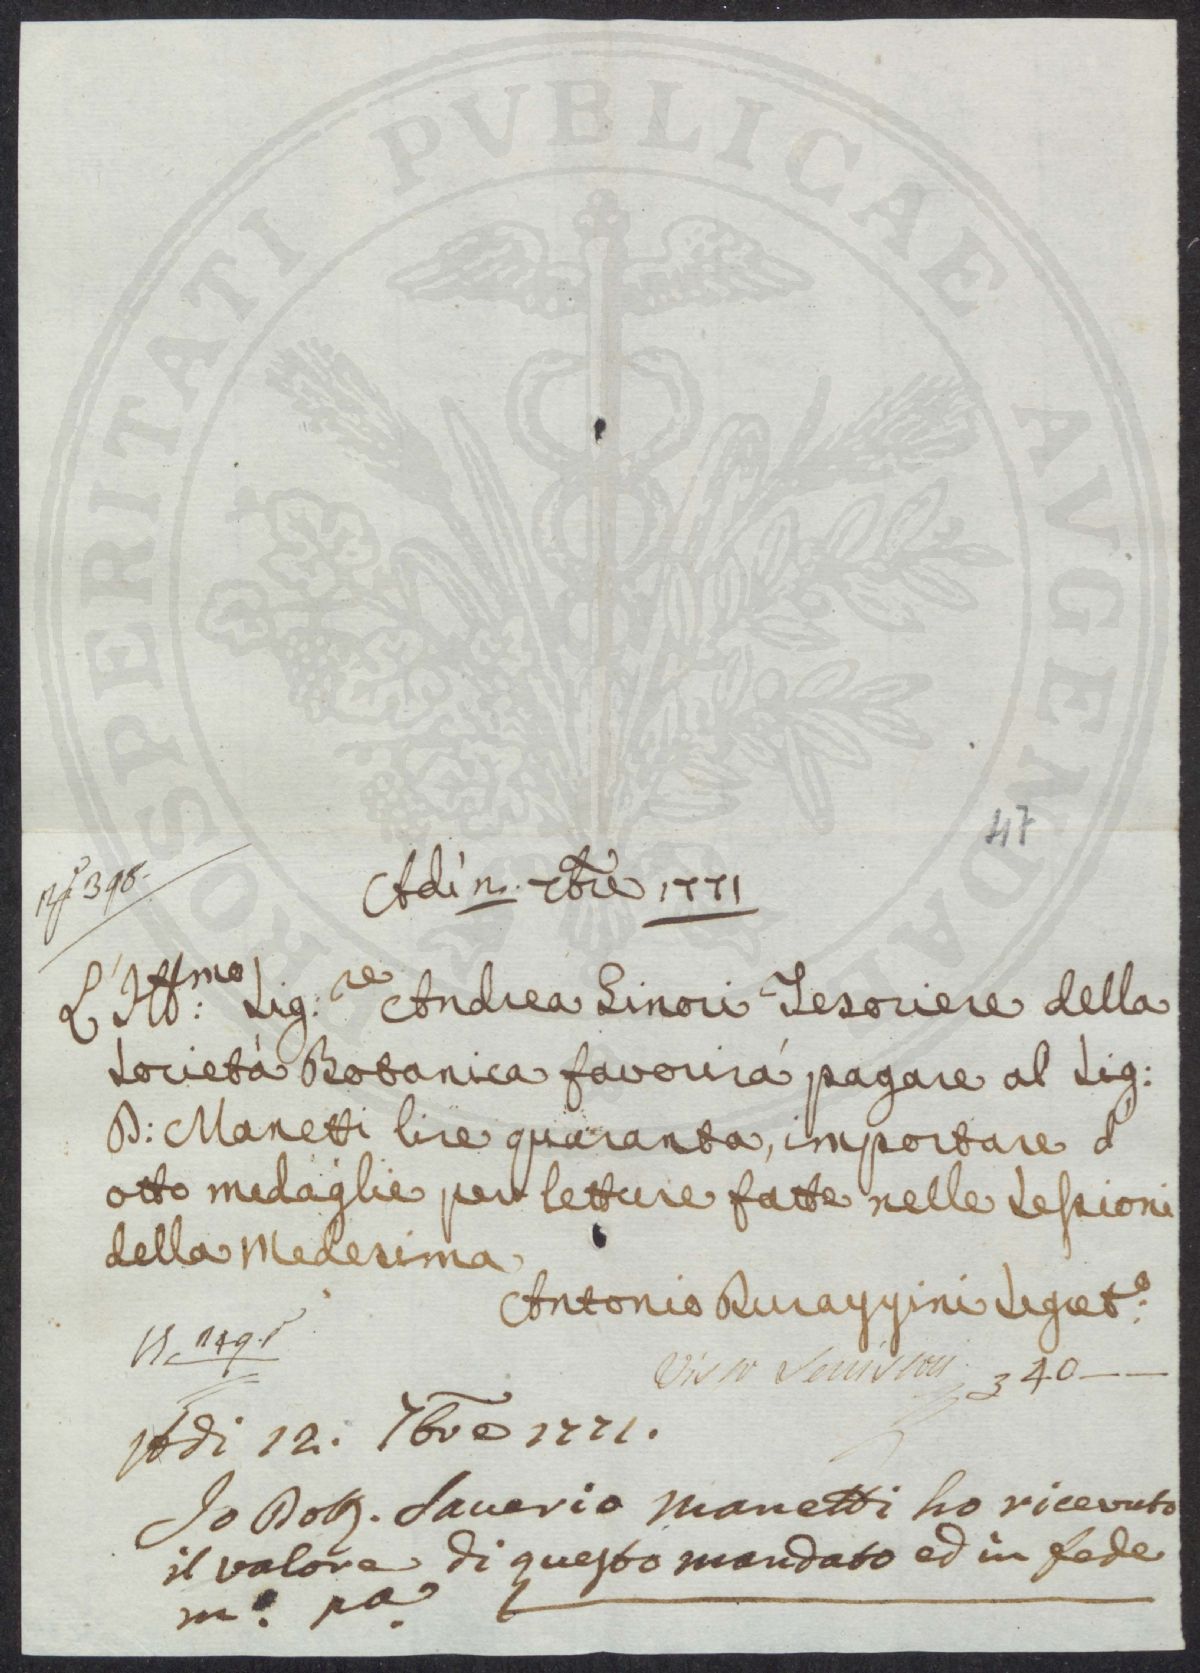 PROSPERITATI PVBLICAE AVGENDAE
47
No. 398.
Adì 11. 7bre 1771
L'Ill:mo Sig:re Andrea Ginori Tesoriere della
Società Botanica favorirà pagare al Sig:
D: Manetti lire quaranta, importare d'
otto medaglie per letture fatte nelle Sessioni
della Medesima
Antonio Durazzini Segret:o
Visto 340——
Adi 12. 7bre 1771.
Io Dott. Saverio Manetti ho ricevuto
il valore di questo mandato ed in fede
mº. pa.